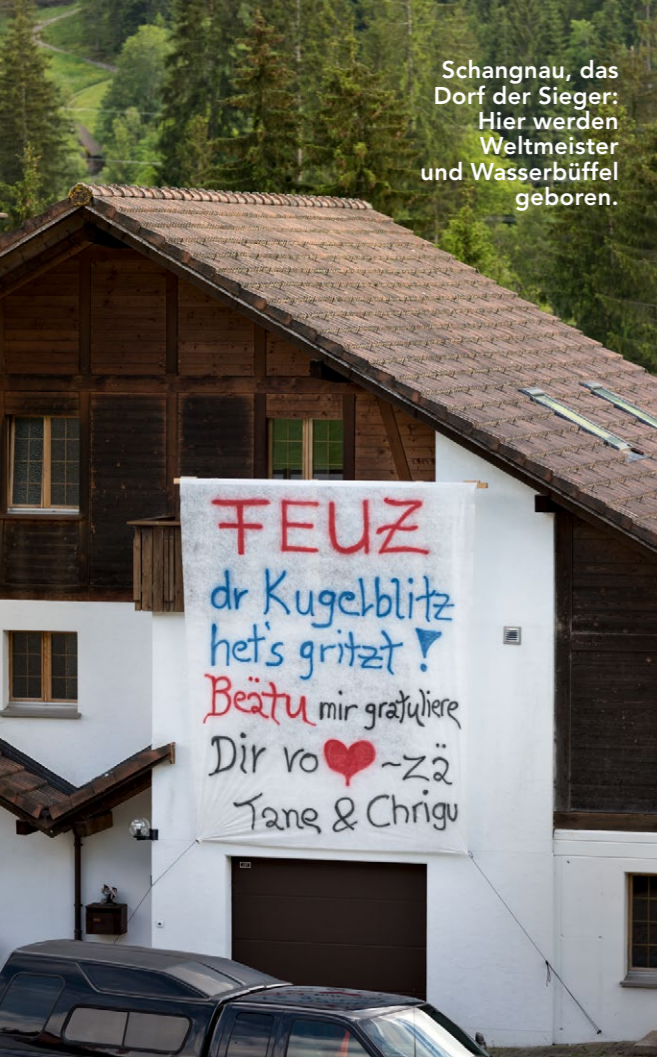 Schangnau, das
Dorf der Sieger:
Hier werden
Weltmeister
und Wasserbüffel
geboren.
FEUZ
dr Kugelblitz
het's gritzt!
Beätu mir gratuliere
Dir vo ❤~zä
Tane & Chrigu